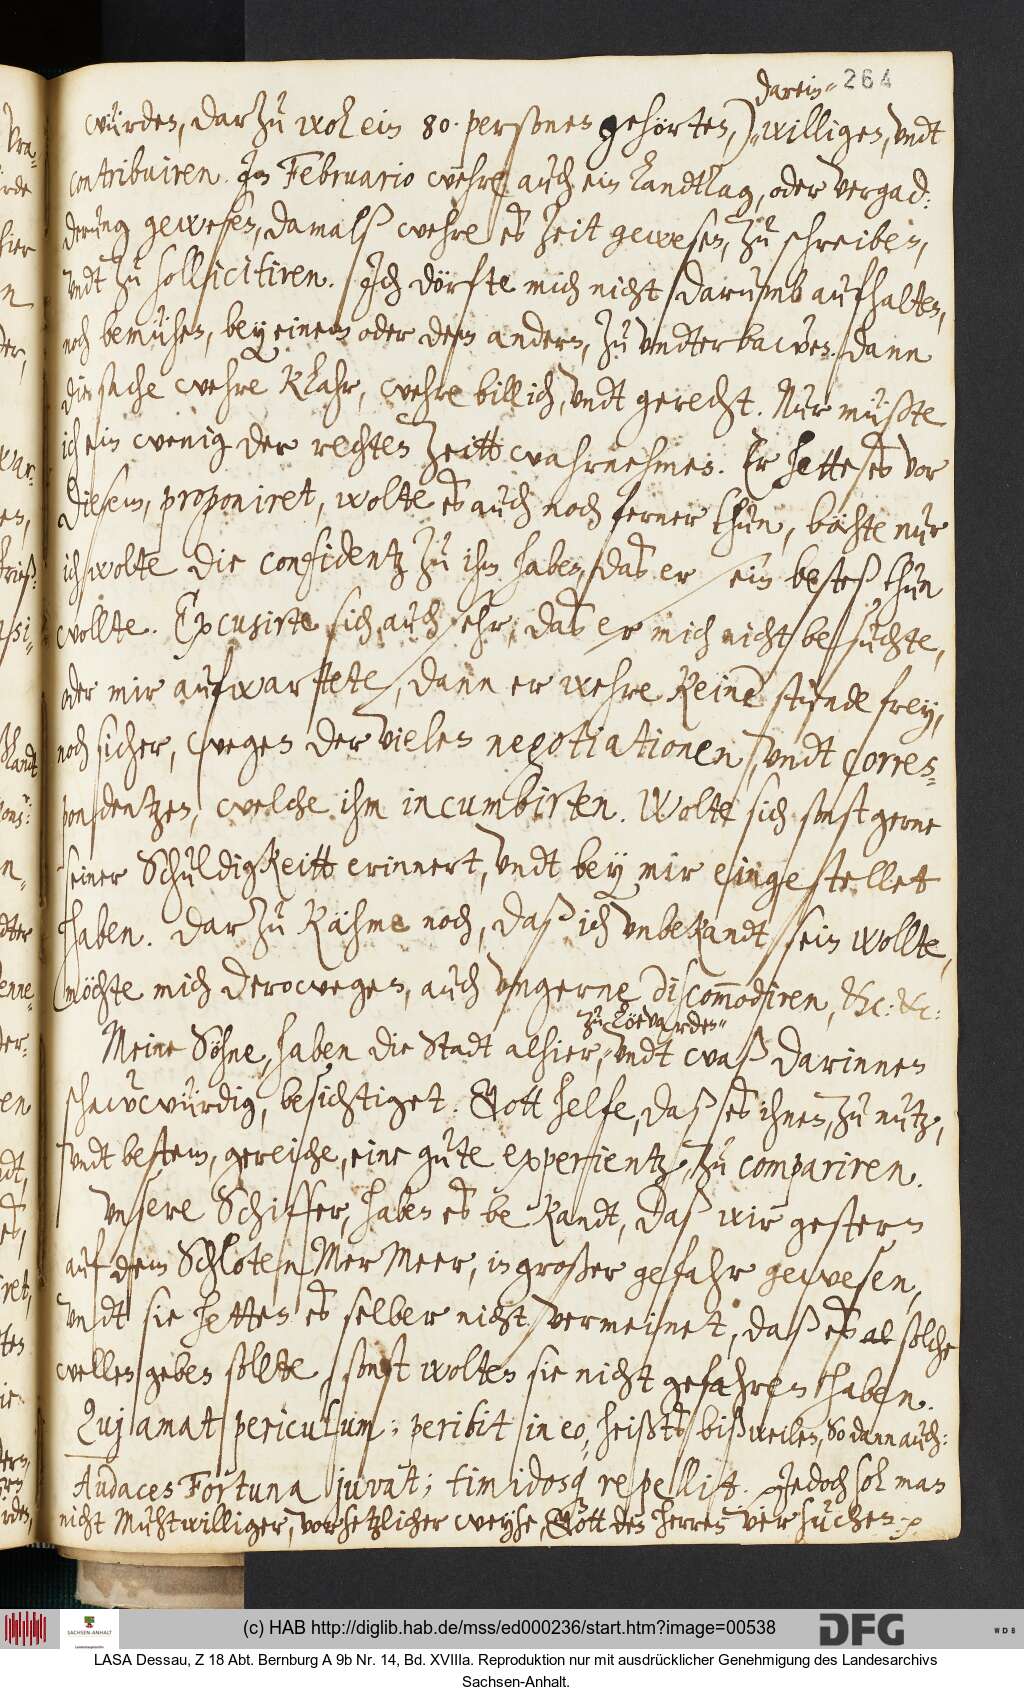 darein⸗ 264
würden, darzu wol ein 80. personen gehörten, willigen, undt
contribuiren. Im Februario wehre auch ein Landtag, oder vergad⸗
derung gewesen, damalß wehre es zeit gewesen, zu schreiben,
undt zu sollicitiren. Ich dörfte mich nicht darumb aufhalten,
noch bemühen, bey einem oder dem andern, zu undterbawen. dann
die sache wehre klahr, wehre billich, undt gerecht. Nur müßte
ich ein wenig der rechten zeitt wahrnehmen. Er hette es vor
diesem, proponiret, wolte es auch noch ferner thun, bähte nur
ich wolte die confidentz zu ihm haben, das er sein bestes thun
wollte. Excusirte sich auch sehr, das er mich nicht besuchte,
oder mir aufwartete, dann er wehre keine stunde frey,
noch sicher, wegen der vielen negotiationen, undt corres⸗
pondentzen, welche ihm incumbirten. Wolte sich sonst gerne
seiner Schuldigkeitt erinnert, undt bey mir eingestellet
haben. Darzu kähme noch, daß ich unbekandt sein wollte,
möchte mich derowegen, auch ungerne discommodiren, etc: etc:
zu Löewarden⸗
Meine Söhne, haben die Stadt alhier, undt waß darinnen
schawwürdig, besichtiget. Gott helfe, daß es ihnen, zu nutz,
undt bestem, gereiche, eine gute experientz, zu compariren.
Unsere Schiffer, haben es bekandt, daß wir gestern
auf dem Schloten Mer Meer, in großer gefahr gewesen,
undt sie hetten es selber nicht vermeinet, daß es al solche
wellen geben sollte, sonst wolten sie nicht gefahren haben.
Quj amat periculum; peribit in eo, heißt es bißweilen, So dann auch:
Audaces Fortuna juvat; timidosq repellit. Jedoch sol man
nicht muhtwilliger, vorsetzlicher weyse, Gott den Herren versuchen.
(c) HAB http://diglib.hab.de/mss/ed000236/start.htm?image=00538
SACHSEN-ANHALT
DFG
WDB
LASA Dessau, Z 18 Abt. Bernburg A 9b Nr. 14, Bd. XVIIIa. Reproduktion nur mit ausdrücklicher Genehmigung des Landesarchivs
Sachsen-Anhalt.